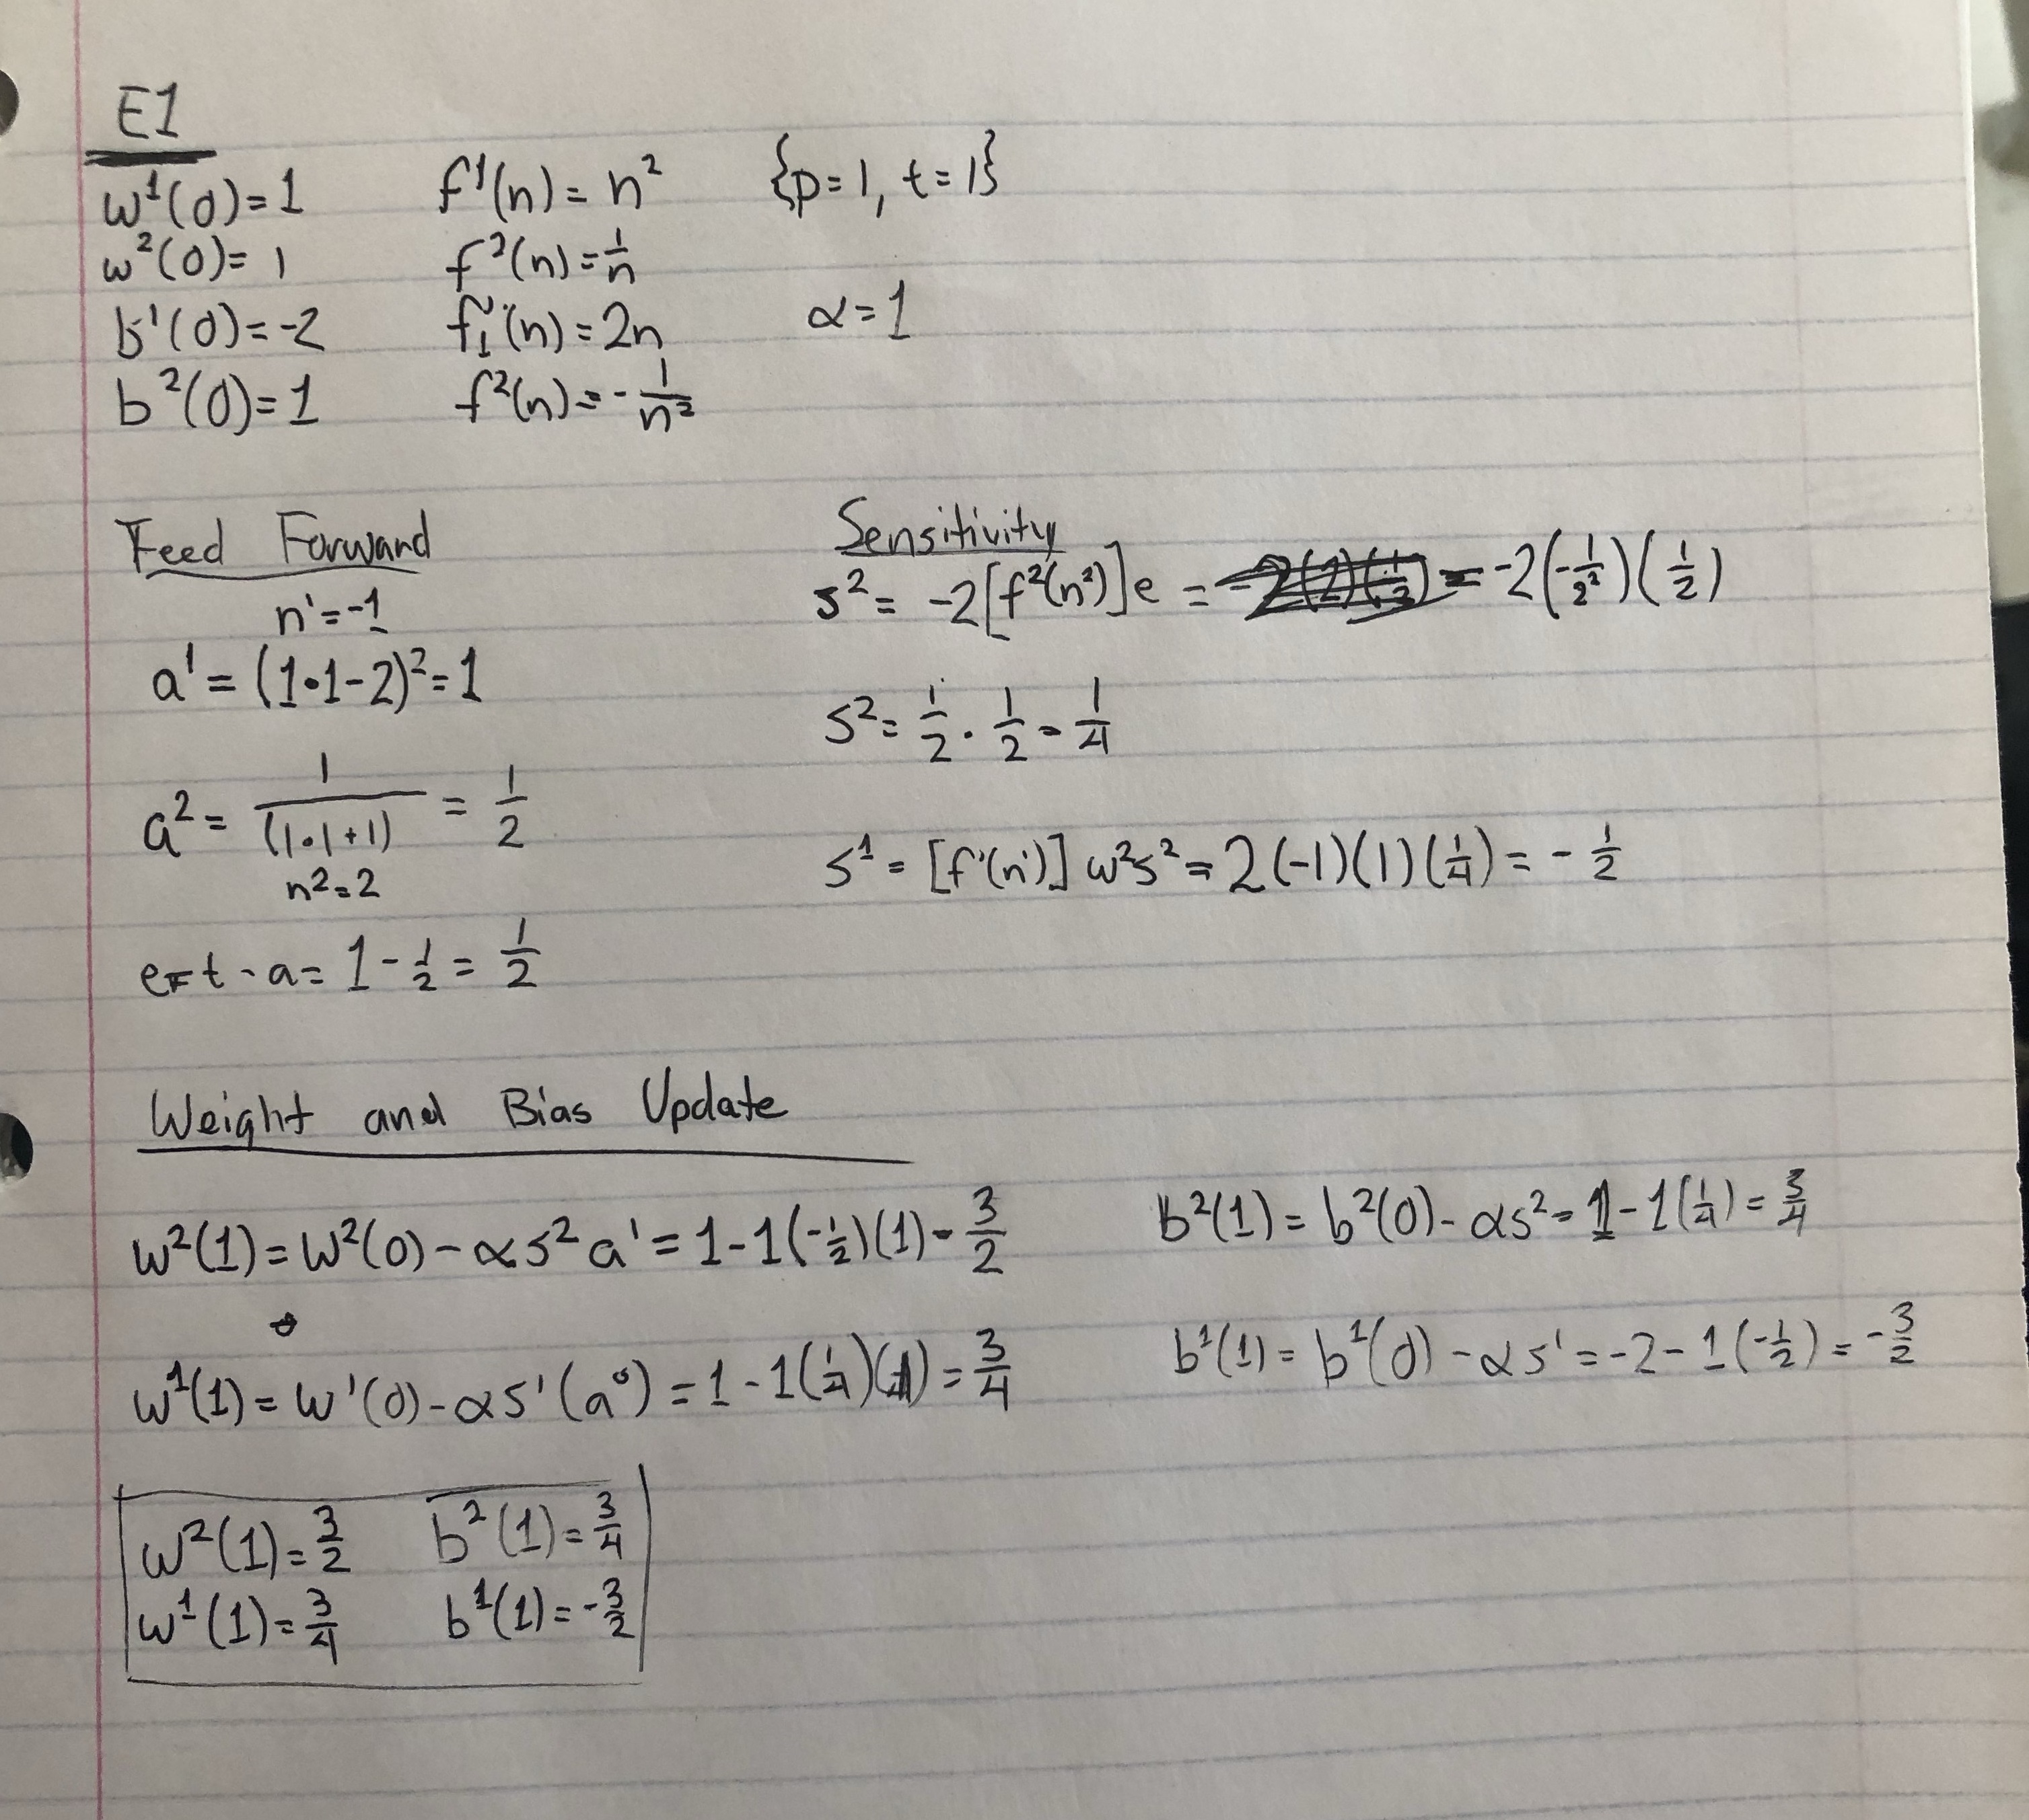 E1
w¹(0)=1 f¹(n)=n² {p=1, t=1}
w²(0)=1 f²(n)=1/n
b¹(0)=-2 f₁(n)=2n α=1
b²(0)=1 f²(n)=-1/n²
Feed Forward
n¹=-1
a¹=(1·1-2)²=1
a²=1/(1·1+1)=1/2
n²=2
e=t-a=1-1/2=1/2
Sensitivity
s²=-2[f²(n²)]e= =-2(-1/2²)(1/2)
s²=1/2·1/2=1/4
s¹=[f¹(n¹)]w²s²=2(-1)(1)(1/4)=-1/2
Weight and Bias Update
w²(1)=w²(0)-αs²a¹=1-1(-1/2)(1)=3/2 b²(1)=b²(0)-αs²=1-1(1/4)=3/4
w¹(1)=w¹(0)-αs¹(a⁰)=1-1(1/4)(1)=3/4 b¹(1)=b¹(0)-αs¹=-2-1(-1/2)=-3/2
w²(1)=3/2 b²(1)=3/4
w¹(1)=3/4 b¹(1)=-3/2